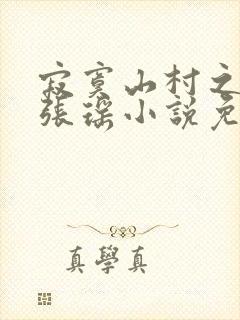 寂寞山村之
張瑤小說免
真學真